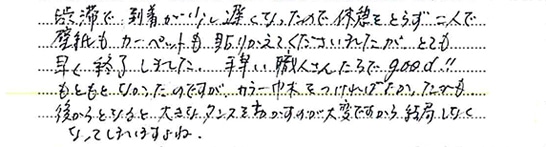 渋滞で到着が少し遅くなったので休憩をとらず二人で
壁紙もカーペットも貼りかえてくださいましたが、とても
早く終了しました。手早い職人さんたちでgood!!
もともとなかったのですが、カラー巾木をつければよかったかも
後からとなると大きなタンスを動かすのが大変ですから結局しなく
なってしまいますよね。